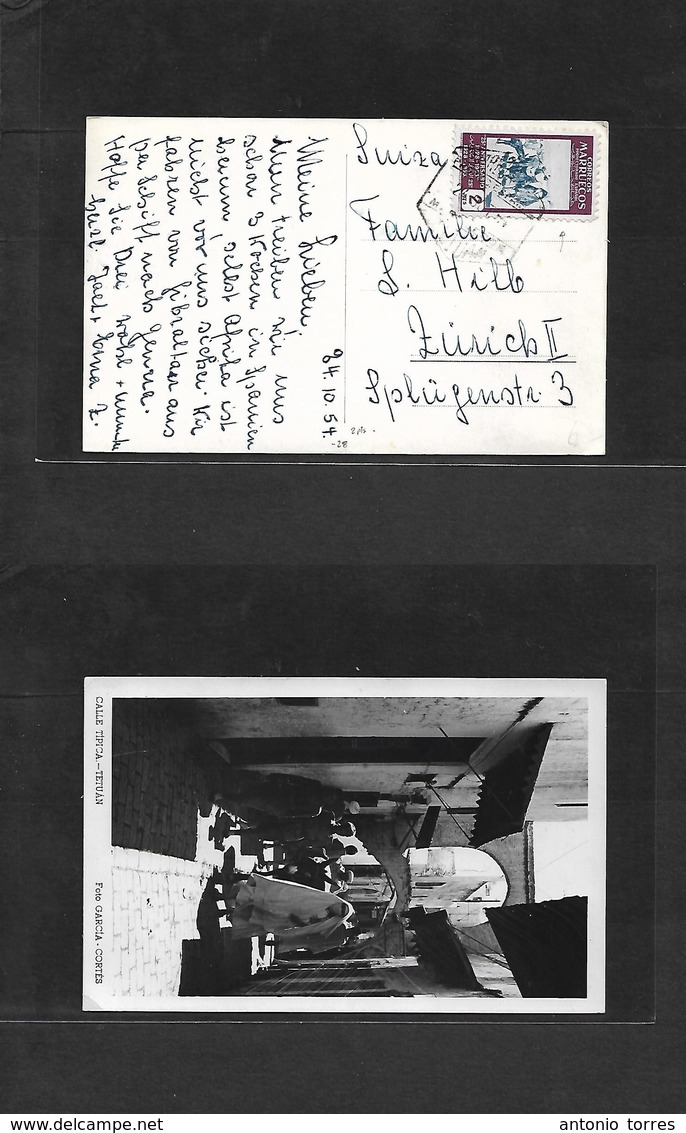 84.10.54.
Meine Lieben,
Nun treiben wir uns
schon 3 Wochen in Spanien
herum, selbst Afrika ist
nicht vor uns sicher. Wir
fahren von Gibraltar aus
per Schiff nach Genua.
Hoffe Sie Drei wohl + munter
Suiza
Familie
S. Hilb
Zürich II
Splügenstr. 3
CORREOS
MARRUECOS
2
2 pts -
-28
CALLE TÍPICA.-TETUÁN
Foto GARCÍA - CORTÉS
antonio torres